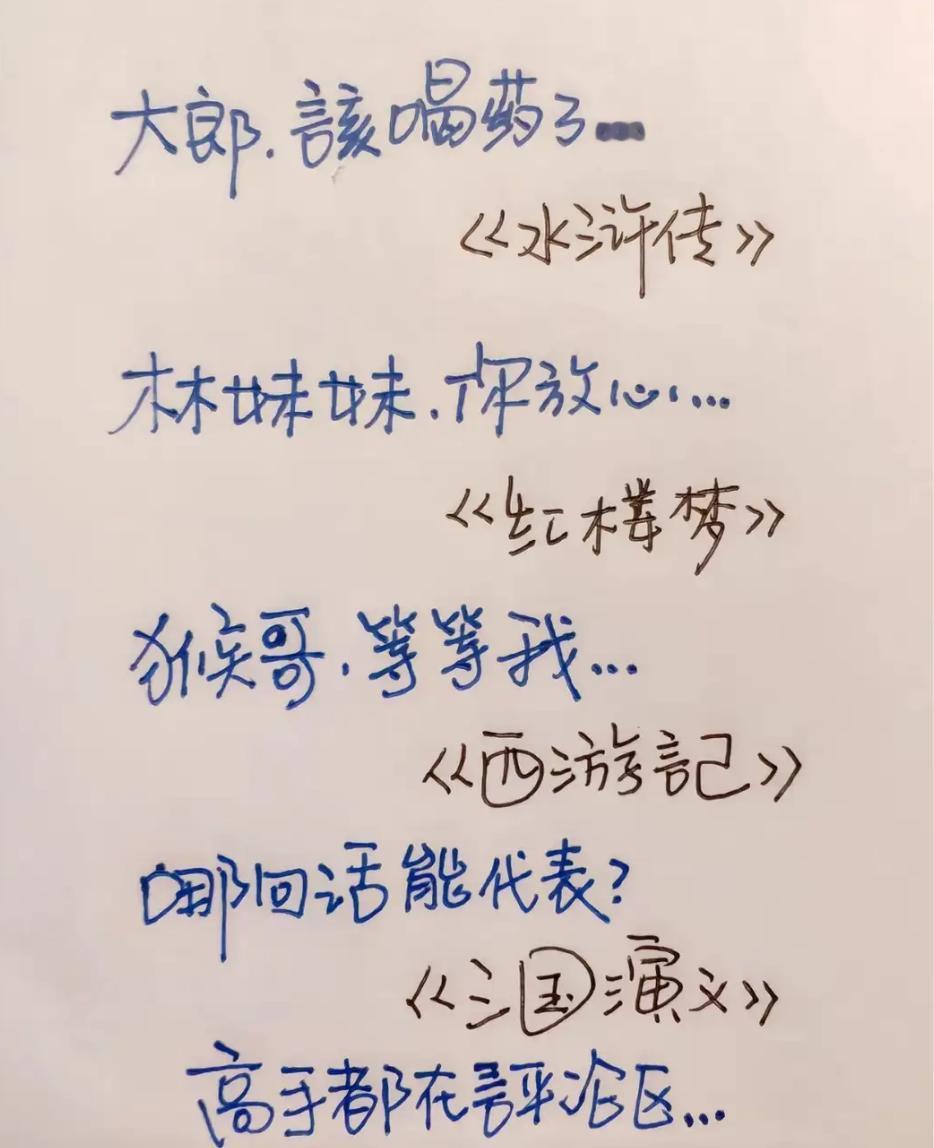 大郎.該喝药了...
《水浒传》
林妹妹.你放心...
《红楼梦》
猴哥.等等我...
《西游記》
哪回话能代表?
《三国演义》
高手都在評论区...